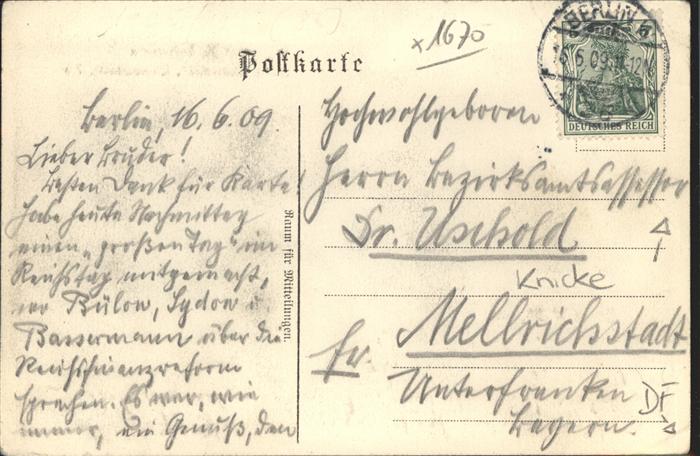 x1670
Postkarte
BERLIN
5.09.11-12
DEUTSCHES REICH
Berlin, 16.6.09.
Lieber Bruder!
Besten Dank für Karte!
habe heute Nachmittag
einen „großen Tag" im
Reichstag mitgemacht,
wo Bülow, Sydow u.
Bassermann über die
Reichsfinanzreform
sprachen. Es war, wie
immer, ein Genuß, den
Raum für Mitteilungen.
Hochwohlgeboren
Herrn Bezirksamtsassessor
Dr. Uschold
Knicke
Mellrichstadt
fr.
Unterfranken
DF
Bayern.